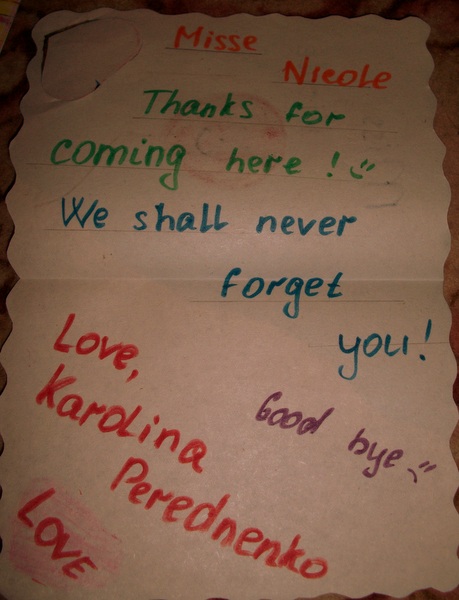 Misse
Nicole
Thanks for
coming here !
We shall never
forget
you!
Love,
Karolina
Perednenko
Good bye
LOVE